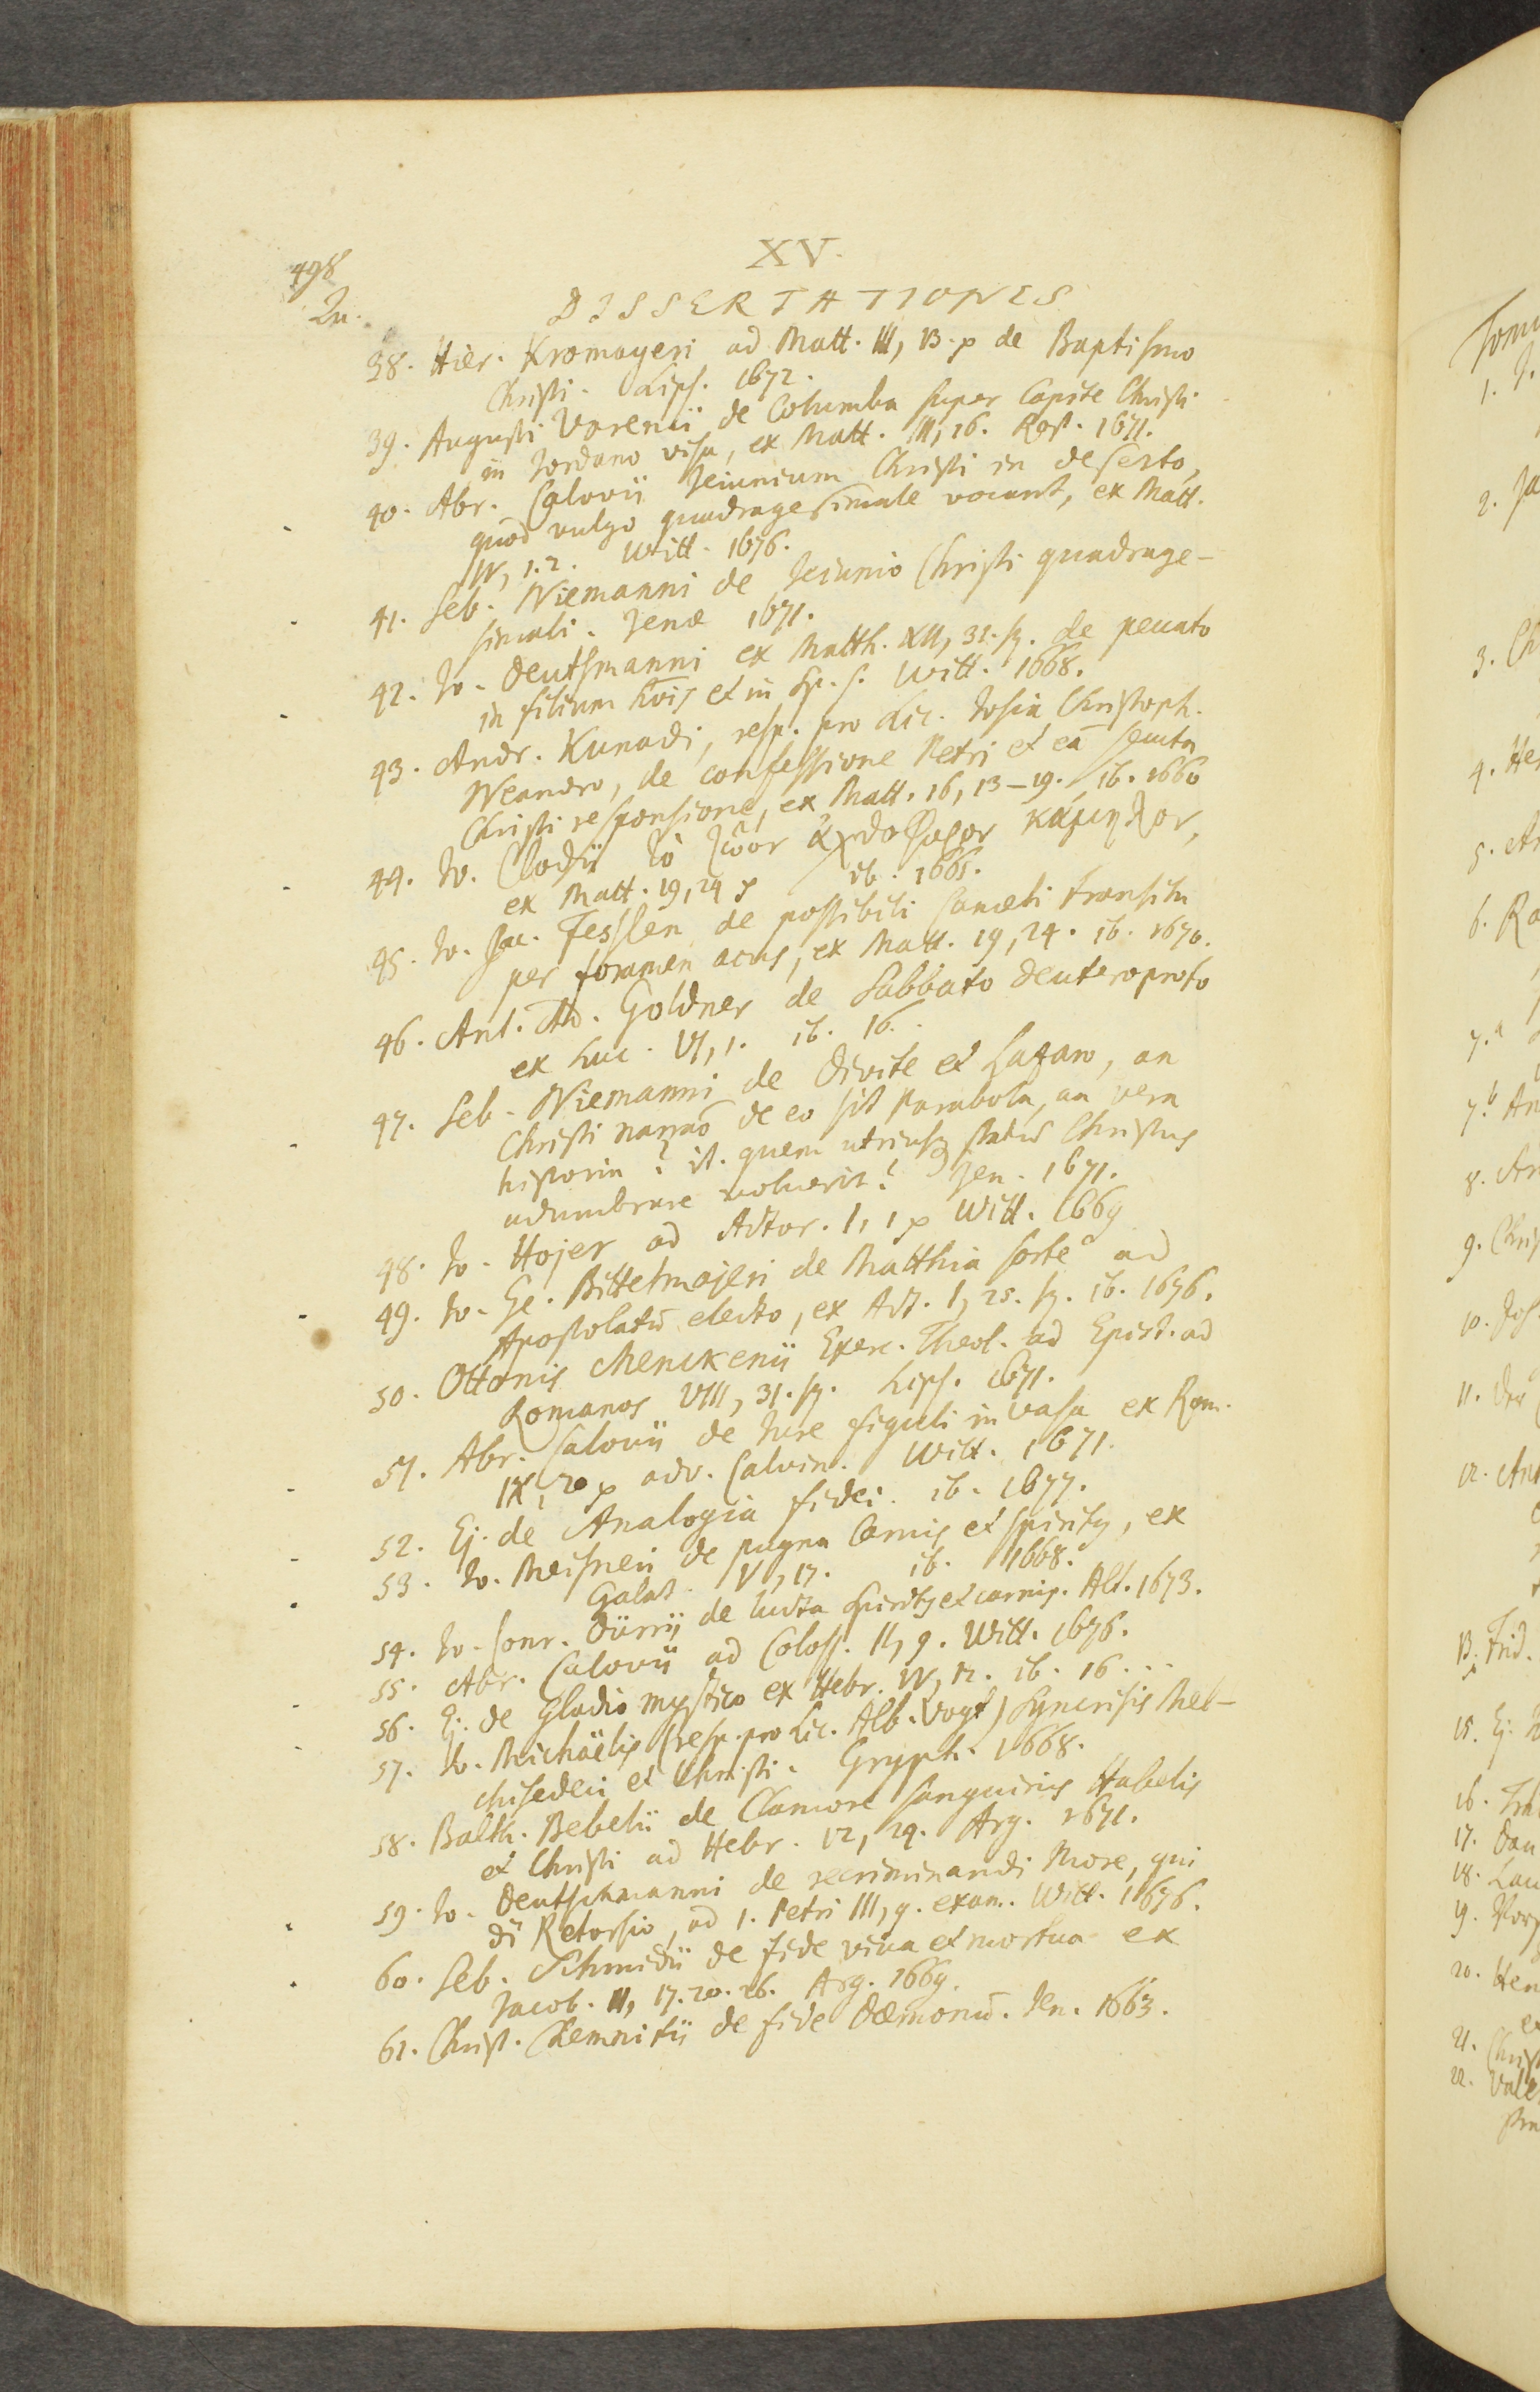 498
XV.
Qu.
DISSERTATIONES
38. Hier. Kromayeri ad Matt. III, 13. p de Baptismo
Christi. Lips. 1672.
39. Augusti Varenii de Columba super Capite Christi
in Jordano visa, ex Matt. III, 16. Rost. 1671.
40. Abr. Calovii Jeiunium Christi in deserto,
quod vulgo quadragesimale vocant, ex Matt.
IV, 1.2. Witt. 1676.
41. Seb. Niemanni de Jeiunio Christi quadrage-
simali. Jenæ 1671.
42. Jo. Deutsmanni ex Matth. XII, 31. sq. de peccato
in filium hois et in Sp. S. Witt. 1668.
43. Andr. Kunadi, resp. pro Lic. Josia Christoph.
Neandro, de confessione Petri et eā secuta
Christi responsione, ex Matt. 16, 13–19. ib. 1660
44. Jo. Clodii τὸ ζῶον ἀχθοφόρον κάμηλον,
ex Matt. 19, 24 p ib. 1665.
45. Jo. Jac. Fesslen de possibili Cameli transitu
per foramen acus, ex Matt. 19, 24. ib. 1670.
46. Ant. Goldner de Sabbato deuteroproto
ex Luc. VI, 1. ib. 16..
47. Seb. Niemanni de Divite et Lazaro, an
Christi narraō de eo sit Parabola, an vera
historia? it. quem utriusq statū Christus
adumbrare voluerit? Jen. 1671.
48. Jo. Hojer ad Actor. I, 1 p Witt. 1669
49. Jo. Ge. Bittelmajeri de Matthia sorte ad
Apostolatū electo, ex Act. I, 25. sq. ib. 1676.
50. Ottonis Menckenii Exerc. Theol. ad Epist. ad
Romanos VIII, 31. sq. Lips. 1671.
51. Abr. Calovii de Jure figuli in vasa ex Rom.
IX, 20 p adv. Calvin. Witt. 1671.
52. Ej. de Analogia fidei. ib. 1677.
53. Jo. Meisneri de pugna Carnis et Spiritq, ex
Galat. V, 17. ib. 1668.
54. Jo. Conr. Dürrii de lucta Spiritq et carnis. Alt. 1673.
55. Abr. Calovii ad Coloss. II, 9. Witt. 1676.
56. Ej. de Gladio mystico ex Hebr. IV, 12. ib. 16...
57. Jo. Michaëlis (resp. pro Lic. Alb. Vogt) Syncrisis Mel-
chisedeci et Christi. Gryph. 1668.
58. Balth. Bebelii de Clamore sanguinis Habelis
et Christi ad Hebr. 12, 24. Arg. 1671.
59. Jo. Deutschmanni de recriminandi More, qui
dr̄ Retorsio, ad 1. Petri III, 9. exam. Witt. 1676.
60. Seb. Schmidii de fide viva et mortua ex
Jacob. II, 17. 20. 26. Arg. 1669.
61. Christ. Chemnitii de fide Dæmonū. Jen. 1663.